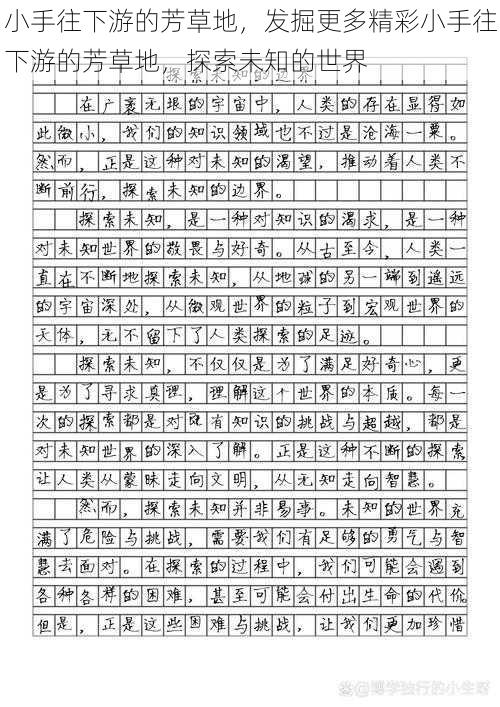 小手往下游的芳草地，发掘更多精彩小手往
下游的芳草地，探索未知的世界
探索未知的边界
在广袤无垠的宇宙中，人类的存在显得如
此微小，我们的知识领域也不过是沧海一粟。
然而，正是这种对未知的渴望，推动着人类不
断前行，探索未知的边界。
探索未知，是一种对知识的渴求，是一种
对未知世界的敬畏与好奇。从古至今，人类一
直在不断地探索未知，从地球的另一端到遥远
的宇宙深处，从微观世界的粒子到宏观世界的
天体，无不留下了人类探索的足迹。
探索未知，不仅仅是为了满足好奇心，更
是为了寻求真理，理解这个世界的本质。每一
次的探索都是对既有知识的挑战与超越，都是
对未知世界的深入了解。正是这种不断的探索
让人类从蒙昧走向文明，从无知走向智慧。
然而，探索未知并非易事。未知的世界充
满了危险与挑战，需要我们有足够的勇气与智
慧去面对。在探索的过程中，我们可能会遇到
各种各样的困难，甚至可能会付出生命的代价。
但是，正是这些困难与挑战，让我们更加珍惜
@博学独行的小生呀